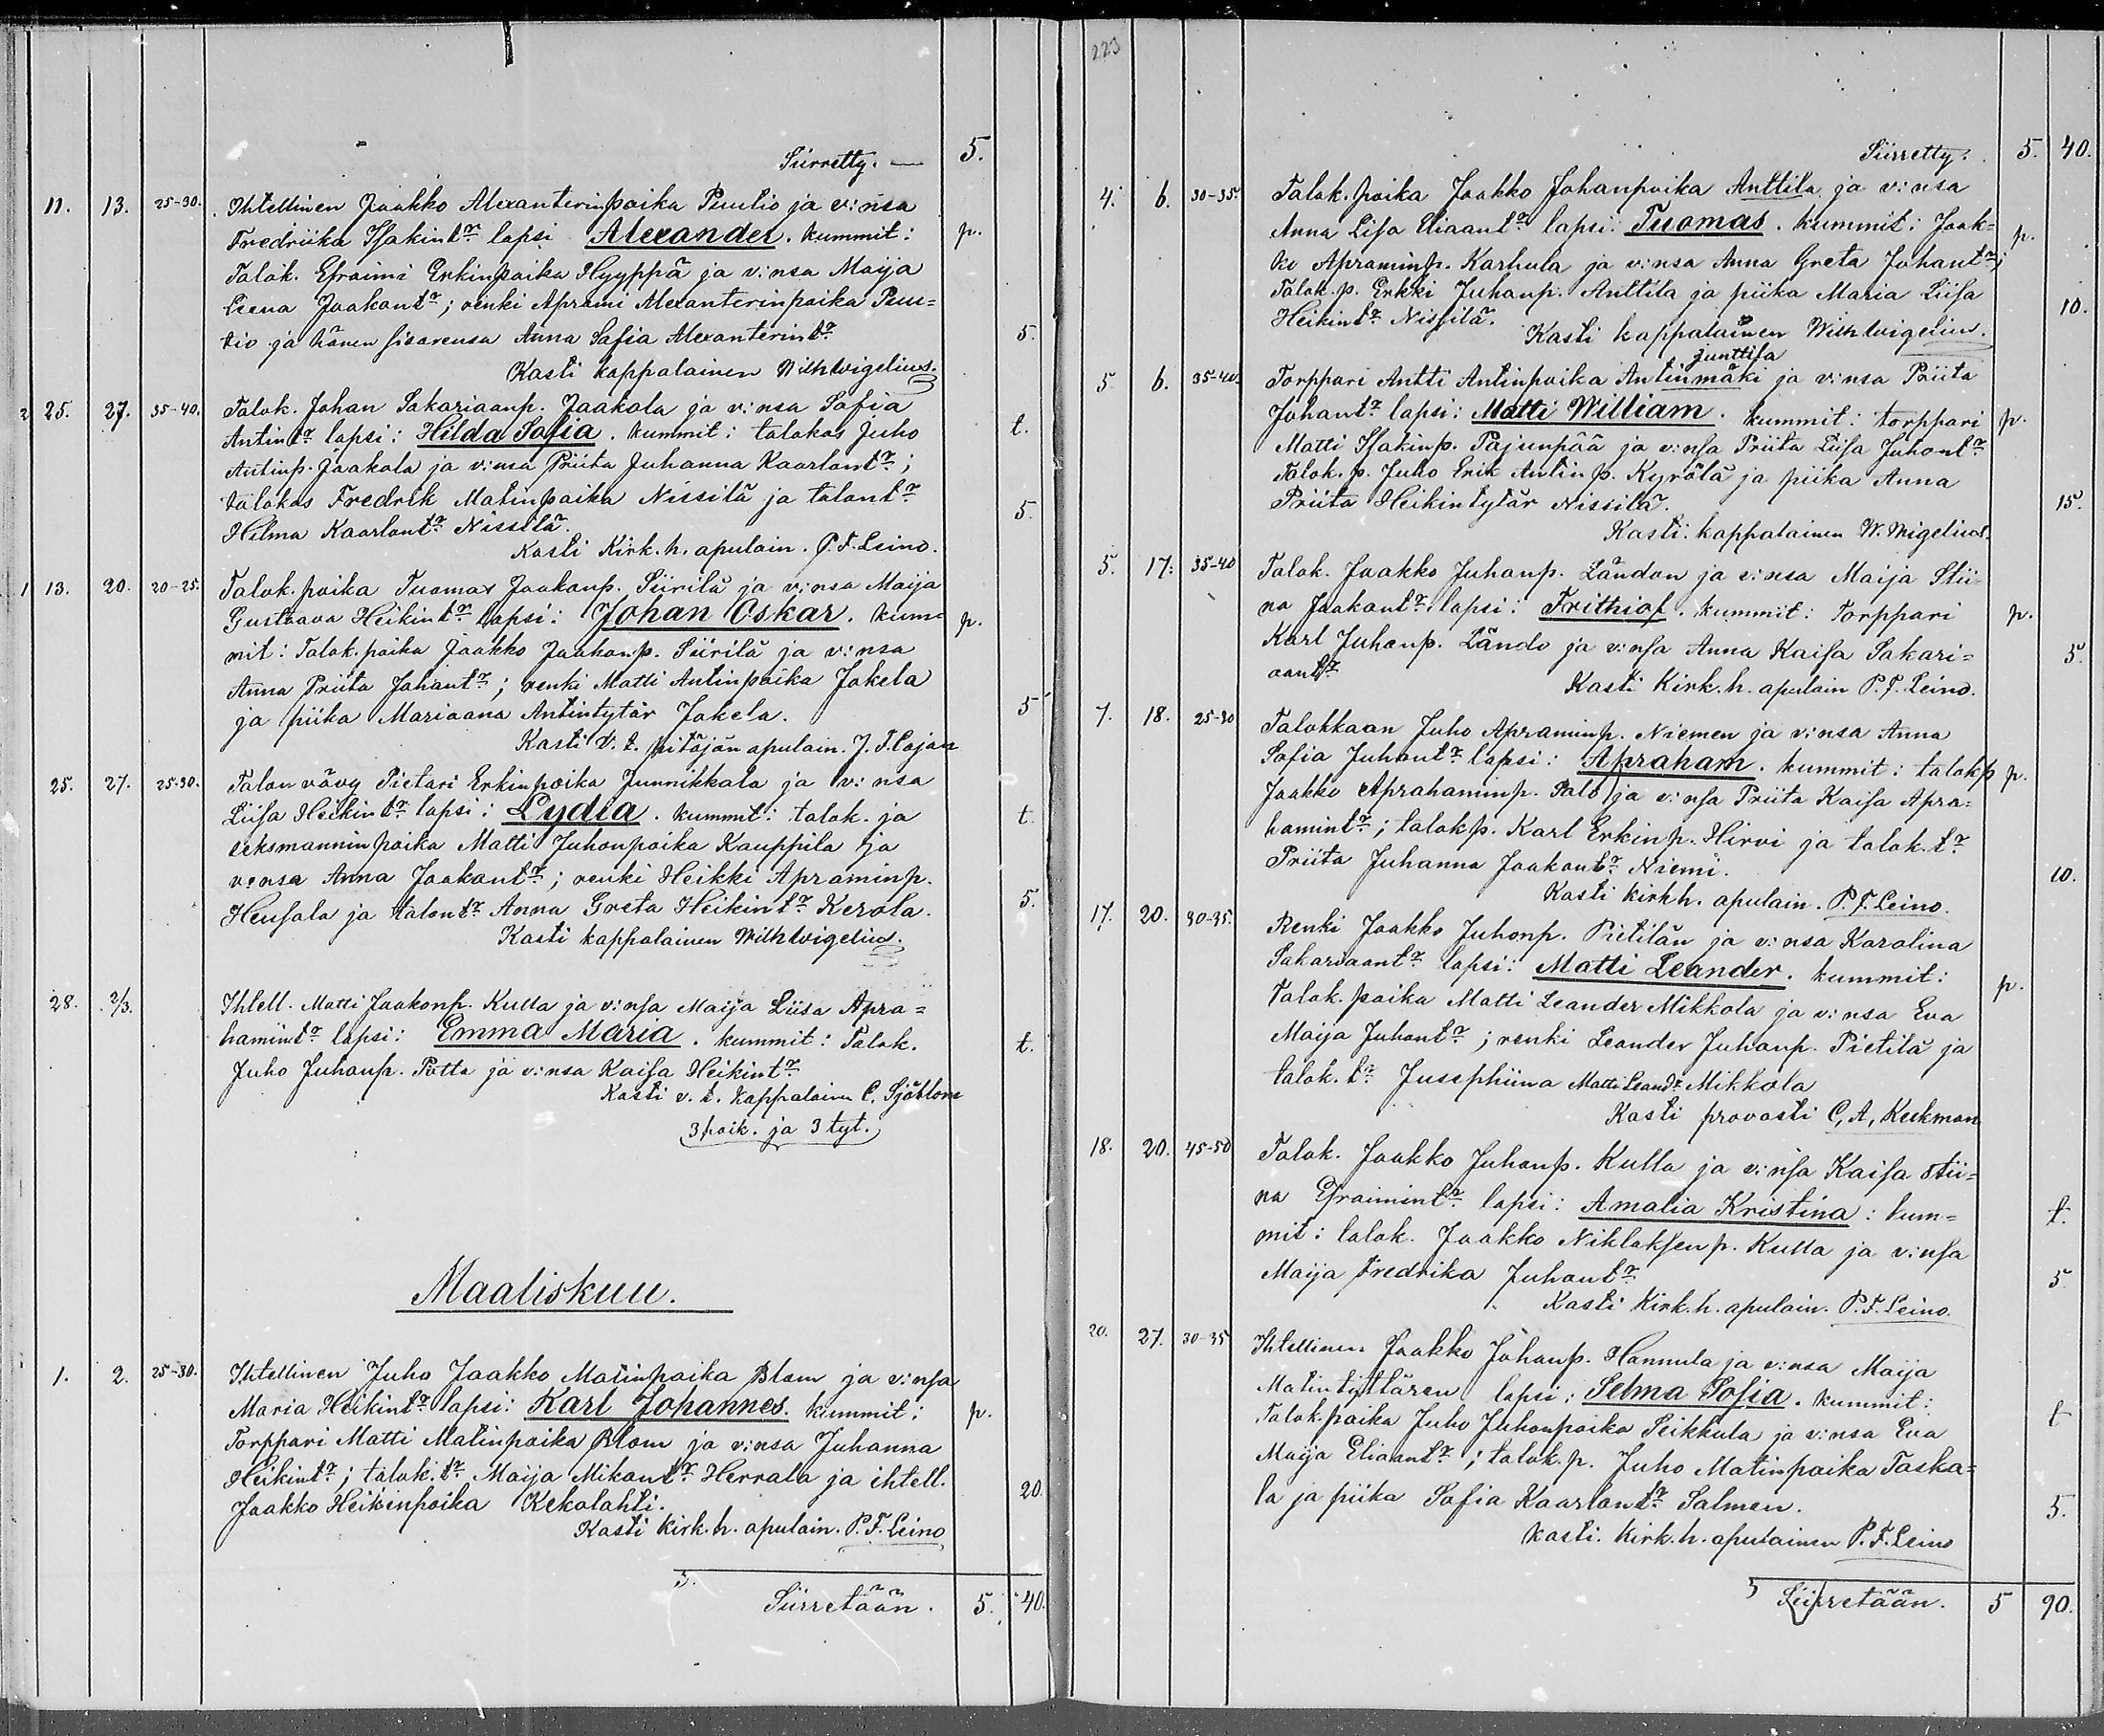 Siirretty. — 5.
11. 13. 25-30. Ihtellinen Jaakko Alexanterinpoika Puutio ja v:nsa
Fredriika Isakint:r lapsi Alexander. kummit: p.
Talok. Efraimi Erkinpoika Hyyppä ja v:nsa Maija
Leena Jaakont:r; renki Aprami Alexanterinpoika Puu=
tio ja hänen sisarensa Anna Sofia Alexanterint:r 5.
Kasti kappalainen Wilh Wigelius.
2 25. 27. 35-40. Talok. Johan Sakariaanp. Jaakola ja v:nsa Sofia
Antint:r lapsi: Hilda Sofia. kummit: talokas Juho t.
Antinp. Jaakola ja v:nsa Priita Juhanna Kaarlont:r;
talokas Fredrik Matinpoika Nissilä ja talont:r
Hilma Kaarlont:r Nissilä. 5.
Kasti Kirk.h. apulain. P.F. Leino.
1 13. 20. 20-25. Talok. poika Tuomas Jaakonp. Siirilä ja v:nsa Maija
Gustaava Heikint:r lapsi: Johan Oskar. kum= p.
mit: Talok. poika Jaakko Jaakonp. Siirilä ja v:nsa
Anna Priita Johant:r; renki Matti Antinpoika Jokela
ja piika Mariaana Antintytär Jokela. 5
Kasti v. t. pitäjän apulain. J. F. Cajan
25. 27. 25-30. Talon vävy Pietari Erkinpoika Junnikkala ja v:nsa
Liisa Heikint:r lapsi: Lydia. kummit: talok. ja t.
seksmannin poika Matti Juhonpoika Kauppila ja
v:nsa Anna Jaakont:r; renki Heikki Apraminp.
Heusala ja talont:r Anna Greta Heikint:r Kerola. 5.
Kasti kappalainen Wilh Wigelius.
28. 2/3. Ihtell. Matti Jaakonp. Kulla ja v:nsa Maija Liisa Apra=
hamint:r lapsi: Emma Maria. kummit: Talok. t.
Juho Juhanp. Potta ja v:nsa Kaisa Heikint:r
Kasti v. t. kappalainen C. Sjöblom
3 poik. ja 3 tyt.
Maaliskuu.
1. 2. 25-30. Ihtellinen Juho Jaakko Matinpoika Blom ja v:nsa
Maria Heikint:r lapsi: Karl Johannes. kummit: p.
Torppari Matti Matinpoika Blom ja v:nsa Juhanna
Heikint:r; talok. t:r Maija Mikont:r Herrala ja ihtell.
Jaakko Heikinpoika Kekolahti. 20.
Kasti kirk.h. apulain. P.F. Leino
5.
Siirretään. 5. 40.
223
Siirretty. 5. 40.
4. 6. 30-35. Talok. poika Jaakko Johanpoika Anttila ja v:nsa
Anna Lisa Eliaant:r lapsi: Tuomas. kummit: Jaak= p.
ko Apraminp. Karhula ja v:nsa Anna Greta Johant:r;
Talok. p. Erkki Juhanp. Anttila ja piika Maria Liisa
Heikint:r Nissilä. 10.
Kasti kappalainen Wilh Wigelius.
Junttila
5. 6. 35-40. Torppari Antti Antinpoika Antinmäki ja v:nsa Priita
Johant:r lapsi: Matti William. kummit: torppari p.
Matti Isakinp. Pajunpää ja v:nsa Priita Liisa Juhont:r
Talok. p. Juho Erik Antinp. Kyrölä ja piika Anna
Priita Heikintytär Nissilä. 15.
Kasti: kappalainen W. Wigelius.
5. 17. 35-40 Talok. Jaakko Juhanp. Ländon ja v:nsa Maija Stii
na Jaakont:r lapsi: Frithiof. kummit: Torppari p.
Karl Juhanp. Ländo ja v:nsa Anna Kaisa Sakari=
aant:r 5.
Kasti Kirk.h. apulain P.F. Leino.
7. 18. 25-30 Talokkaan Juho Apraminp. Niemen ja v:nsa Anna
Sofia Juhont:r lapsi: Apraham. kummit: talokp p.
Jaakko Aprahaminp. Palo ja v:nsa Priita Kaisa Apra=
hamint:r; talokp. Karl Erkinp. Hirvi ja talok. t:r
Priita Juhanna Jaakont:r Niemi. 10.
Kasti kirkh. apulain. P.F. Leino.
17. 20. 30-35. Renki Jaakko Juhonp. Pietilän ja v:nsa Karolina
Sakariaant:r lapsi: Matti Leander. kummit: p.
Talok. poika Matti Leander Mikkola ja v:nsa Eva
Maija Juhont:r; renki Leander Juhanp. Pietilä ja
talok. t:r Jusephiina Matti Leand:r Mikkola
Kasti provasti C. A. Keckman
18. 20. 45-50 Talok. Jaakko Juhonp. Kulla ja v:nsa Kaisa Stii=
na Efraimint:r lapsi: Amalia Kristina: kum= t.
mit: talok. Jaakko Niklaksenp. Kulla ja v:nsa
Maija Fredrika Juhont:r 5
Kasti Kirk.h. apulain. P.F. Leino.
20. 27. 30-35 Ihtellinen Jaakko Johanp. Hannula ja v:nsa Maija
Matintyttären lapsi: Selma Sofia. kummit: t
Talok. poika Juho Juhonpoika Seikkula ja v:nsa Eva
Maija Eliaant:r; talok. p. Juho Matinpoika Taska=
la ja piika Sofia Kaarlont:r Salmen. 5.
Kasti. Kirk.h. apulainen P.F. Leino
5 Siirretään. 5 90.